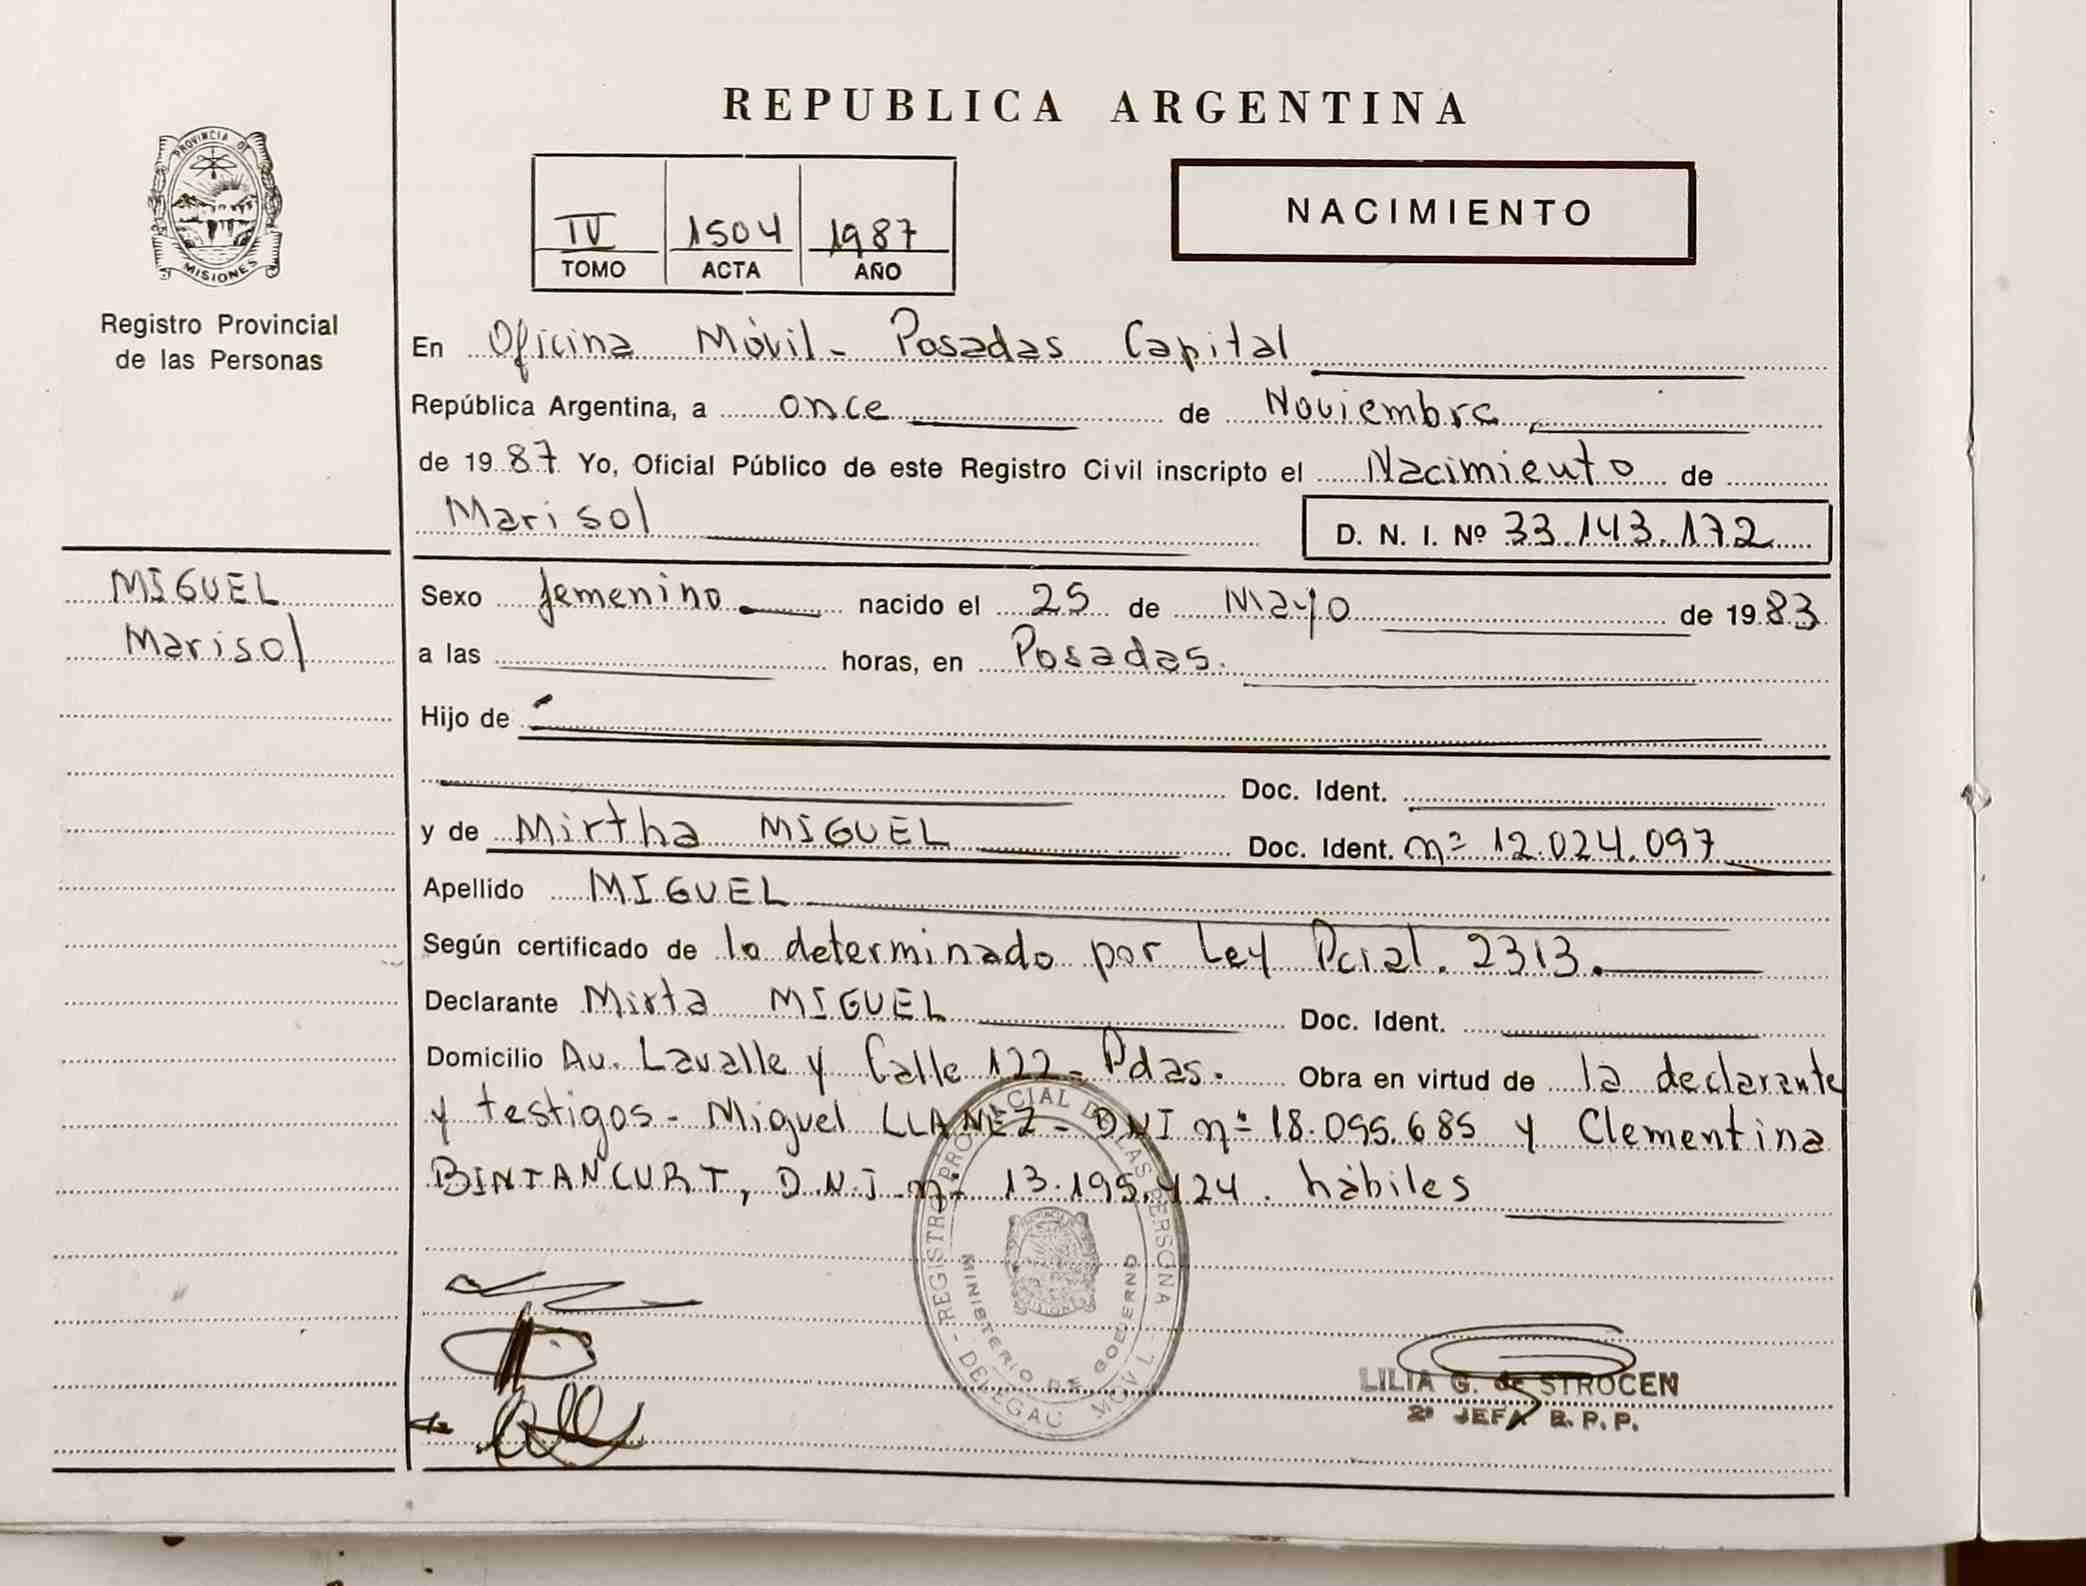 REPUBLICA ARGENTINA
PROVINCIA DE
MISIONES
Registro Provincial
de las Personas
IV 1504 1987
TOMO ACTA AÑO
NACIMIENTO
En Oficina Móvil - Posadas Capital
República Argentina, a once de Noviembre
de 1987 Yo, Oficial Público de este Registro Civil inscripto el Nacimiento de
Marisol D. N. I. Nº 33.143.172
MIGUEL
Marisol
Sexo femenino nacido el 25 de Mayo de 1983
a las horas, en Posadas.
Hijo de
Doc. Ident.
y de Mirtha MIGUEL Doc. Ident. nº 12.024.097
Apellido MIGUEL
Según certificado de lo determinado por Ley Pcial. 2313.
Declarante Mirta MIGUEL Doc. Ident.
Domicilio Av. Lavalle y Calle 122 - Pdas. Obra en virtud de la declarante
y testigos - Miguel LLANEZ - DNI nº 18.095.685 y Clementina
BINTANCURT, D.N.I. nº 13.195.424. hábiles
REGISTRO PROVINCIAL DE LAS PERSONA
MINISTERIO DE GOBIERNO
DELEGAC MOVIL
LILIA G. de STROCEN
2ª JEFA R. P. P.